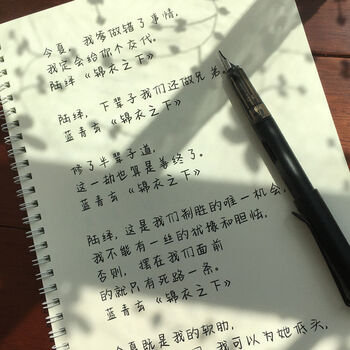 今夏，我爹做错了事情，
我定会给你个交代。
陆绎《锦衣之下》
陆绎，下辈子我们还做兄弟。
蓝青玄《锦衣之下》
修了半辈子道，
这一劫也算是善终了。
蓝青玄《锦衣之下》
陆绎，这是我们制胜的唯一机会，
我不能有一丝的犹豫和胆怯，
否则，摆在我们面前
的就只有死路一条。
蓝青玄《锦衣之下》
今夏既是我的软肋，
我可以为她低头，